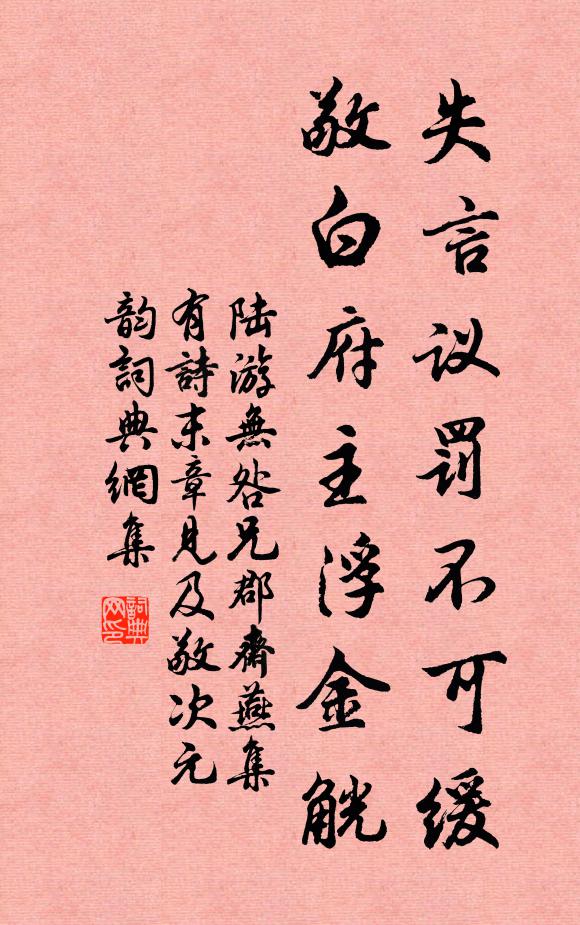 失言议罚不可缓
敬白府主浮金觥
陆游無咎兄郡齋燕集
有詩末章見及敬次元
韵詞典網集
詞典网印